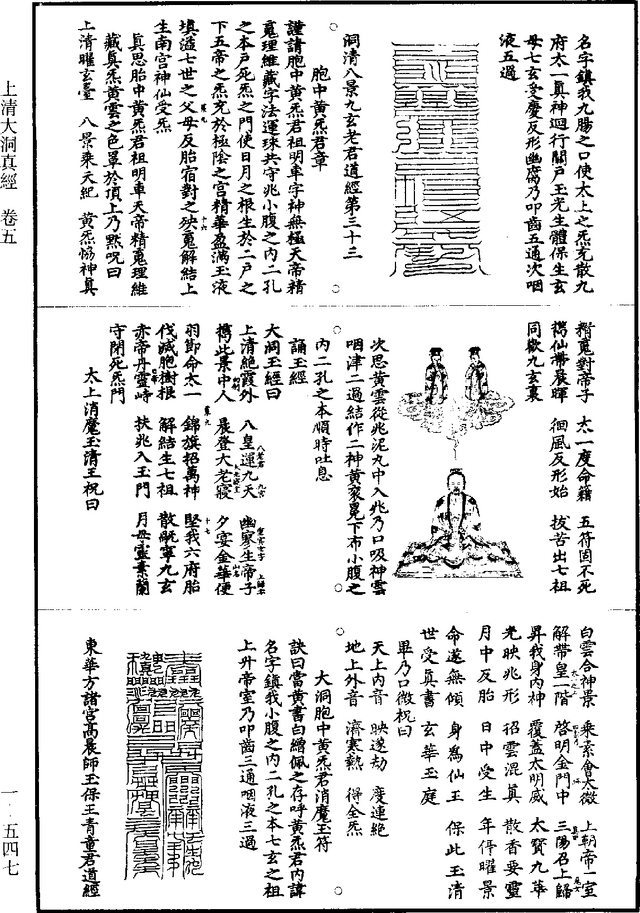 名字鎮我九腸之口使太上之炁充散九
府太一真神迴行關戶玉光生體保生玄
母七玄受慶反形幽腐乃叩齒五通次咽
液五過
洞清八景九玄老君道經第三十三
胞中黃炁君章
謹請胞中黃炁君祖明車字神無極天帝精
䰟理維藏字法運珠共守兆小腹之內二孔
之本戶死炁之門使日月之根生於二戶之
下五帝之炁充於極陰之宮精華盈滿玉液
填溢七世之父母反胎宿對之殃䰟解結上
生南宮神仙受炁
真思胎中黃炁君祖明車天帝精䰟理維
藏真炁黃雲之色罩於頂上乃黙呪曰
上清曜玄臺 八景乘天紀 黃炁恊神真
精䰟對帝子 太一度命籍 五符固不死
携仙帶晨暉 徊風反形始 拔苦出七祖
同歡九玄裏
次思黃雲從兆泥丸中入兆乃口吸神雲
咽津二過結作二神黃衮冕下布小腹之
內二孔之本順時吐息
誦玉經
大洞玉經曰
上清絕霞外 八皇運九天 幽寥生帝子
携此景中人 晨登大老寢 夕宴金華便
羽節命太一 錦旗招萬神 堅我六府胎
伐滅胞樹根 解結生七祖 散䀛寧九玄
赤帝丹靈峙 扶兆入玉門 月母靈素蘭
守閉死炁門
太上消魔玉清王祝曰
白雲合神景 乘素會太微 上朝帝一室
解帶皇一階 啓明金門中 三陽召上歸
昇我身內神 覆蓋太明威 太賢九華
光映兆形 招雲混真 散香要靈
月中反胎 日中受生 年侔曜景
命遂無傾 身為仙王 保此玉清
世受真書 玄華玉庭
畢乃口微祝曰
天上內音 映遂劫 度連絕
地上外音 濟寒熱 得全炁
大洞胞中黃炁君消魔玉符
訣曰當黃書白繒佩之存呼黃炁君內諱
名字鎮我小腹之內二孔之本七玄之祖
上升帝室乃叩齒三通咽液三過
東華方諸宮高晨師玉保王青童君道經
上清大洞真經 卷五
一‥五四七